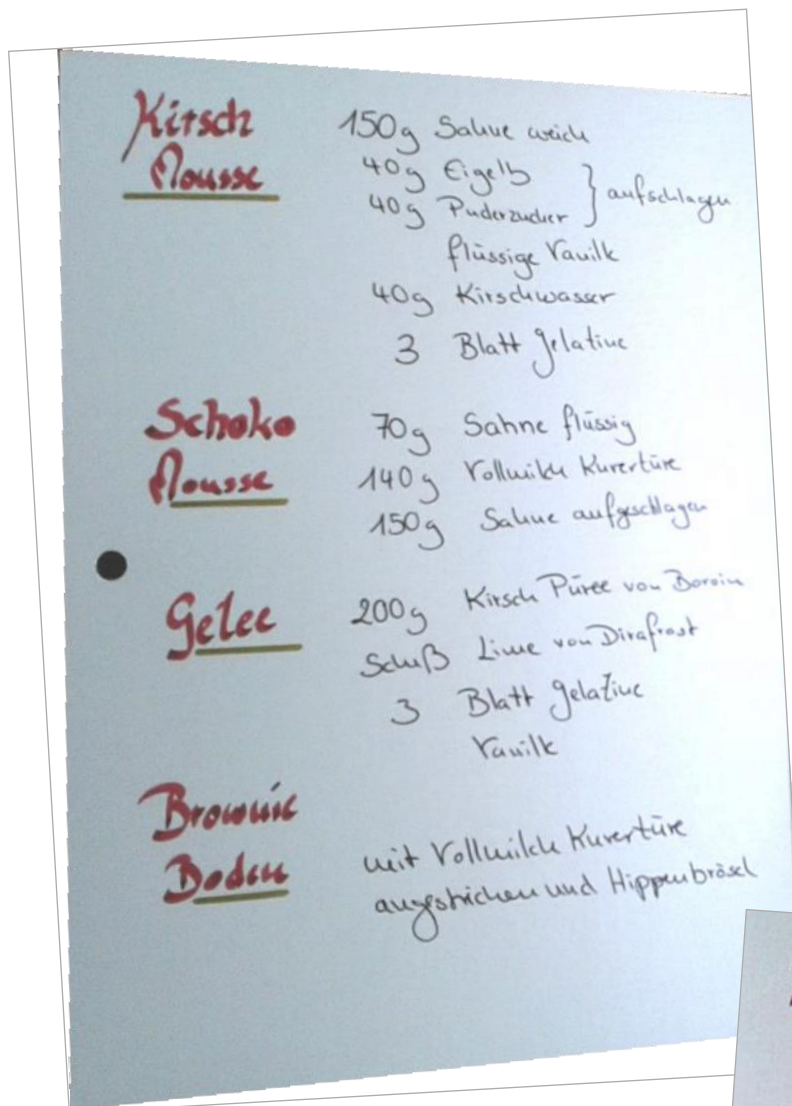 Kirsch
Mousse
150g Sahne weich
40g Eigelb
40g Puderzucker } aufschlagen
flüssige Vanille
40g Kirschwasser
3 Blatt Gelatine
Schoko
Mousse
70g Sahne flüssig
140g Vollmilch Kuvertüre
150g Sahne aufgeschlagen
Gelee
200g Kirsch Püree von Boroin
Schuß Lime von Dirafrost
3 Blatt Gelatine
Vanille
Brownie
Boden
mit Vollmilch Kuvertüre
angestrichen und Hippenbrösel